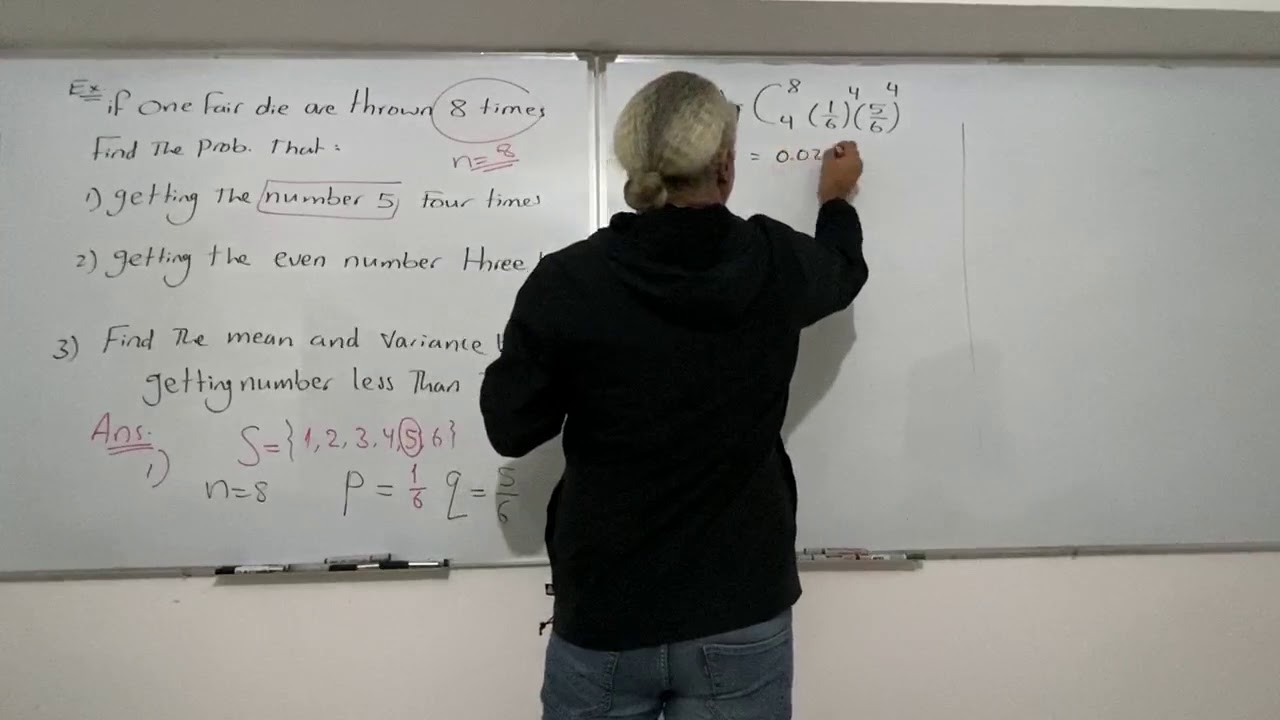 Ex if one fair die are thrown 8 times
Find The Prob. That:
n=8
1) getting The number 5, Four times
2) getting the even number Three
3) Find The mean and Variance
getting number less Than
Ans.
1) S={1,2,3,4,5,6}
n=8 p=1/6 q=5/6
C 8 4 (1/6)^4 (5/6)^4
= 0.02